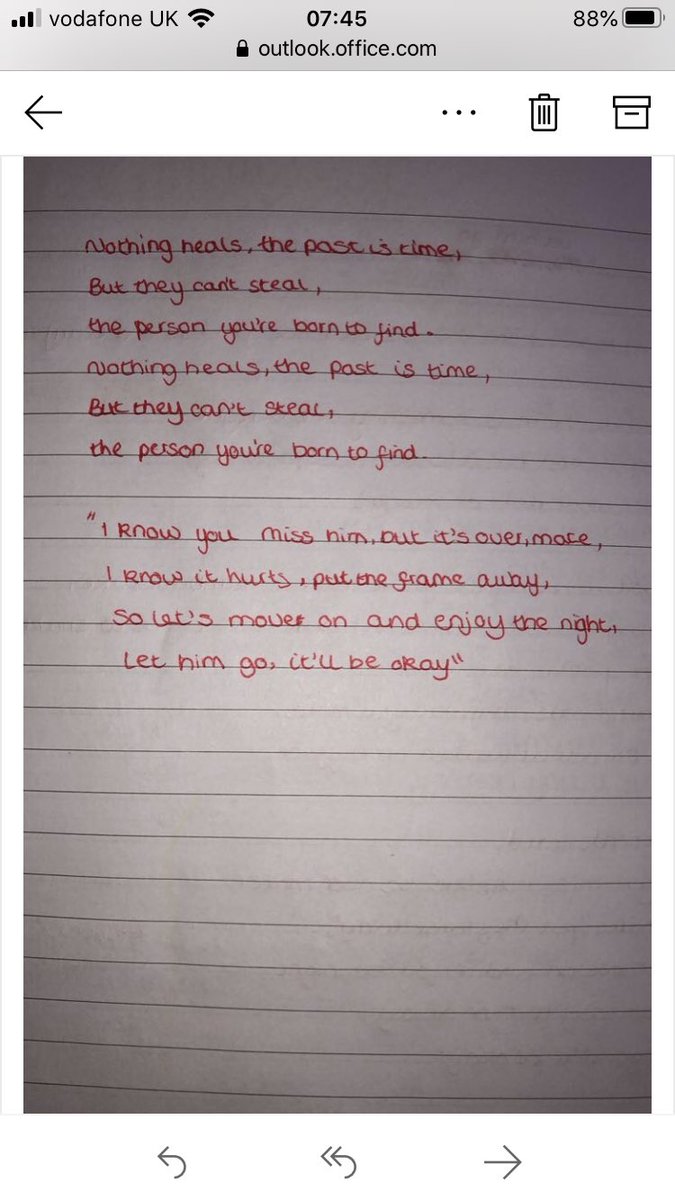 vodafone UK 07:45 88%
outlook.office.com
Nothing heals, the past is time,
But they can't steal,
the person you're born to find.
Nothing heals, the past is time,
But they can't steal,
the person you're born to find.
"I know you miss him, but it's over, mate,
I know it hurts, put the frame away,
So let's move on and enjoy the night,
Let him go, it'll be okay"